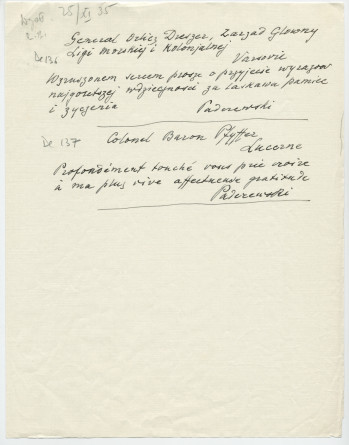 25/XI 35
De 136
General Orlicz Dreszer, Zarząd Glowny
Ligi Morskiej i Kolonjalnej
Varsovie
Wzruszonem sercem proszę o przyjęcie wyrazów
najgorętszej wdzięczności za łaskawą pamięć
i życzenia Paderewski
De 137
Colonel Baron Pfyffer
Lucerne
Profondément touché vous prie croire
à ma plus vive affectueuse gratitude
Paderewski